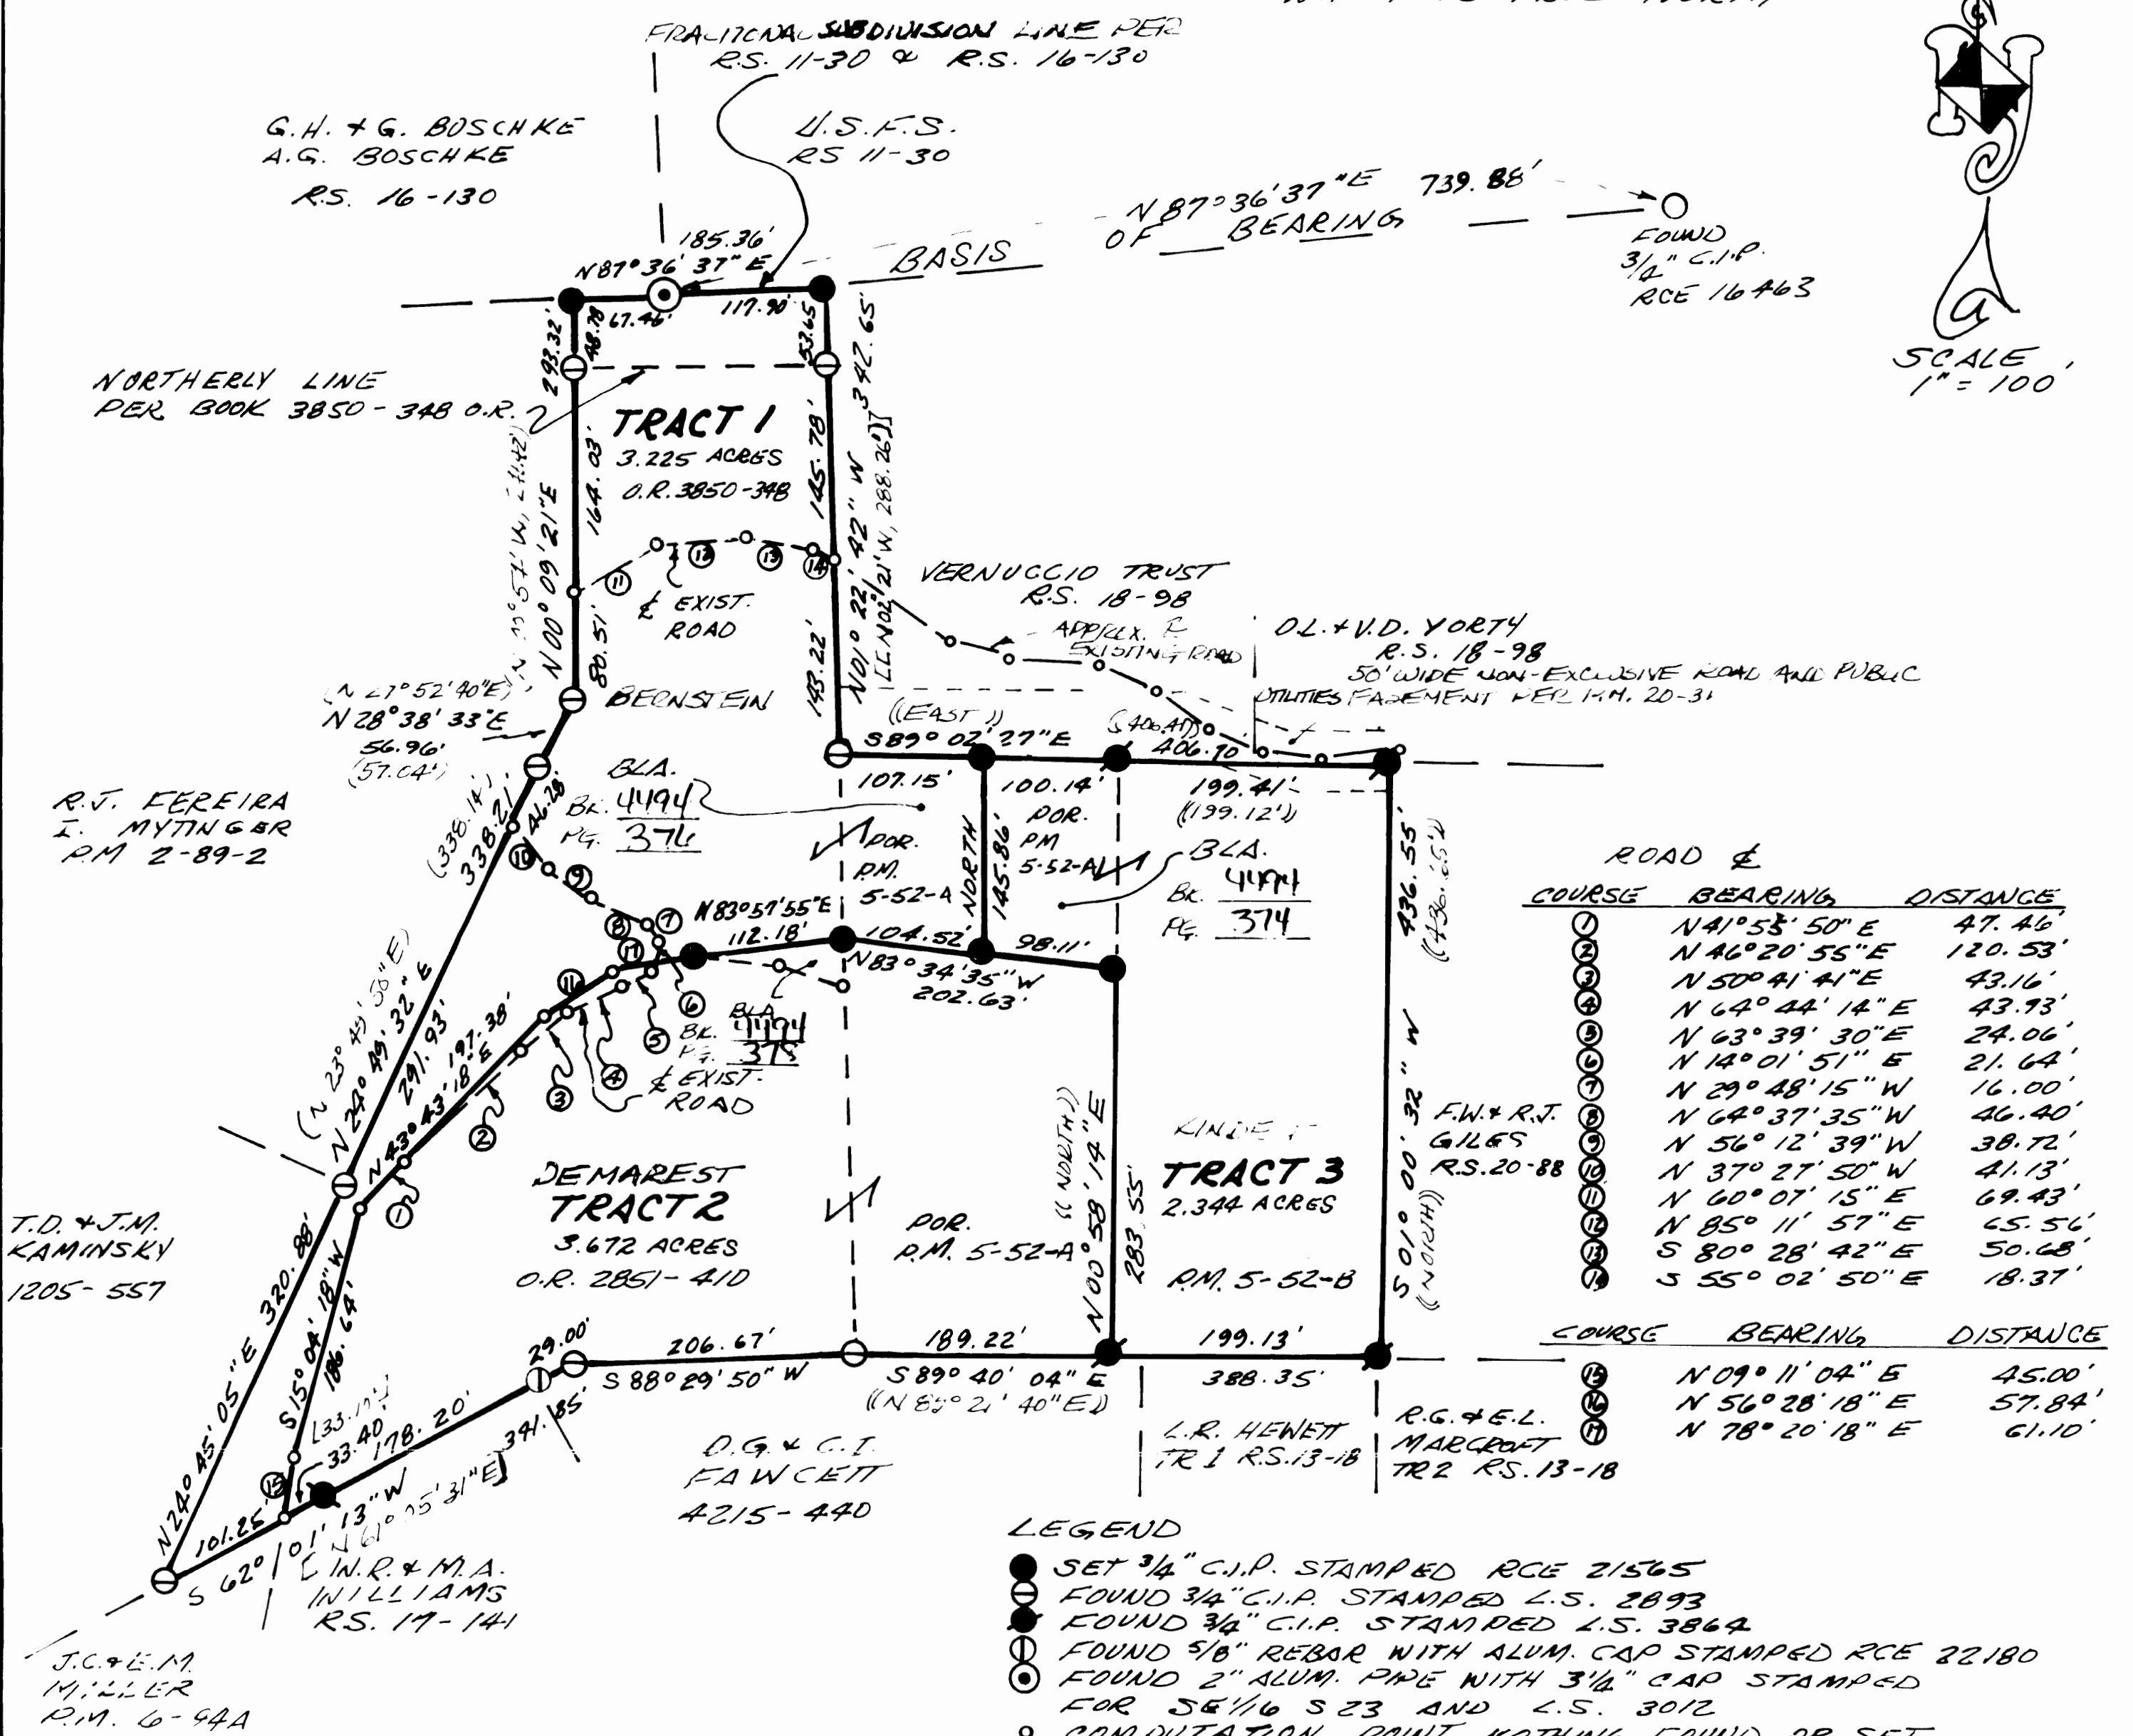 SUBDIVISION LINE PER
R.S. 11-30 & R.S. 16-130
G.H. & G. BOSCHKE
A.G. BOSCHKE
R.S. 16-130
U.S.F.S.
RS 11-30
N87°36'37"E 739.88'
BASIS OF BEARING
FOUND
3/4" C.I.P.
RCE 16463
SCALE
1" = 100'
185.36'
N87°36'37"E
67.46'
117.90'
293.32'
48.78
53.65'
342.65'
NORTHERLY LINE
PER BOOK 3850-348 O.R.
TRACT 1
3.225 ACRES
O.R. 3850-348
164.03'
N00°09'21"E
80.51'
145.78'
143.22'
N01°22'42"W
288.26']]
11
12
13
14
℄ EXIST.
ROAD
VERNUCCIO TRUST
R.S. 18-98
APPROX. ℄
EXISTING ROAD
O.L. & V.D. YORTY
R.S. 18-98
50' WIDE NON-EXCLUSIVE ROAD AND PUBLIC
UTILITIES EASEMENT PER P.M. 20-31
(N 27°52'40"E)
N28°38'33"E
56.96'
(57.04')
BERNSTEIN
((EAST))
S89°02'27"E
406.70'
107.15'
100.14'
199.41'
((199.12'))
R.J. FEREIRA
I. MYTINGER
P.M 2-89-2
(338.14')
338.21'
46.28'
BLA.
BK. 4494
PG. 376
POR.
P.M.
5-52-A
NORTH
145.86'
POR.
PM
5-52-A
BLA.
BK. 4494
PG. 374
436.55'
10
9
8
7
17
16
N83°57'55"E
112.18'
104.52'
98.11'
N83°34'35"W
202.63'
6
5
4
3
2
1
BLA
BK. 4494
PG. 375
℄ EXIST.
ROAD
(N 23°49'58"E)
N24°49'32"E
291.93'
197.38'
N43°43'18"E
DEMAREST
TRACT 2
3.672 ACRES
O.R. 2851-410
POR.
P.M. 5-52-A
((NORTH))
N00°58'14"E
283.55'
TRACT 3
2.344 ACRES
P.M. 5-52-B
S01°00'32"W
((NORTH))
F.W. & R.J.
GILES
R.S. 20-88
T.D. & J.M.
KAMINSKY
1205-557
N24°45'05"E 320.88'
S15°04'18"W
186.64'
29.00'
206.67'
S88°29'50"W
189.22'
S89°40'04"E
199.13'
388.35'
33.40'
178.20'
341.85'
15
101.25'
S 62°01'13"W
D.G. & C.I.
FAWCETT
4215-440
L.R. HEWETT
TR 1 R.S. 13-18
R.G. & E.L.
MARCROFT
TR 2 R.S. 13-18
W.R. & M.A.
WILLIAMS
RS. 17-141
J.C. & E.M.
MILLER
P.M. 6-94A
ROAD ℄
COURSE BEARING DISTANCE
1 N41°53'50"E 47.46'
2 N46°20'55"E 120.53'
3 N50°41'41"E 43.16'
4 N64°44'14"E 43.93'
5 N63°39'30"E 24.06'
6 N14°01'51"E 21.64'
7 N29°48'15"W 16.00'
8 N64°37'35"W 46.40'
9 N56°12'39"W 38.72'
10 N37°27'50"W 41.13'
11 N60°07'15"E 69.43'
12 N85°11'57"E 65.56'
13 S80°28'42"E 50.68'
14 S55°02'50"E 18.37'
COURSE BEARING DISTANCE
15 N09°11'04"E 45.00'
16 N56°28'18"E 57.84'
17 N78°20'18"E 61.10'
LEGEND
SET 3/4" C.I.P. STAMPED RCE 21565
FOUND 3/4" C.I.P. STAMPED L.S. 2893
FOUND 3/4" C.I.P. STAMPED L.S. 3864
FOUND 5/8" REBAR WITH ALUM. CAP STAMPED RCE 22180
FOUND 2" ALUM. PIPE WITH 3 1/4" CAP STAMPED
FOR SE 1/16 S 23 AND L.S. 3012